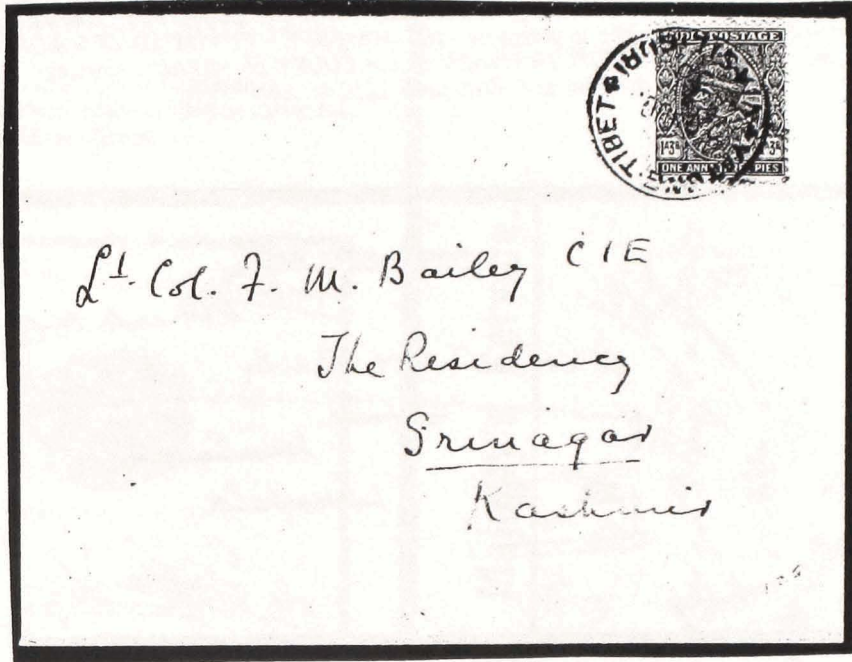 INDIA POSTAGE
TIBET
1A3P
ONE ANNA THREE PIES
Lt. Col. F. M. Bailey CIE
The Residency
Srinagar
Kashmir